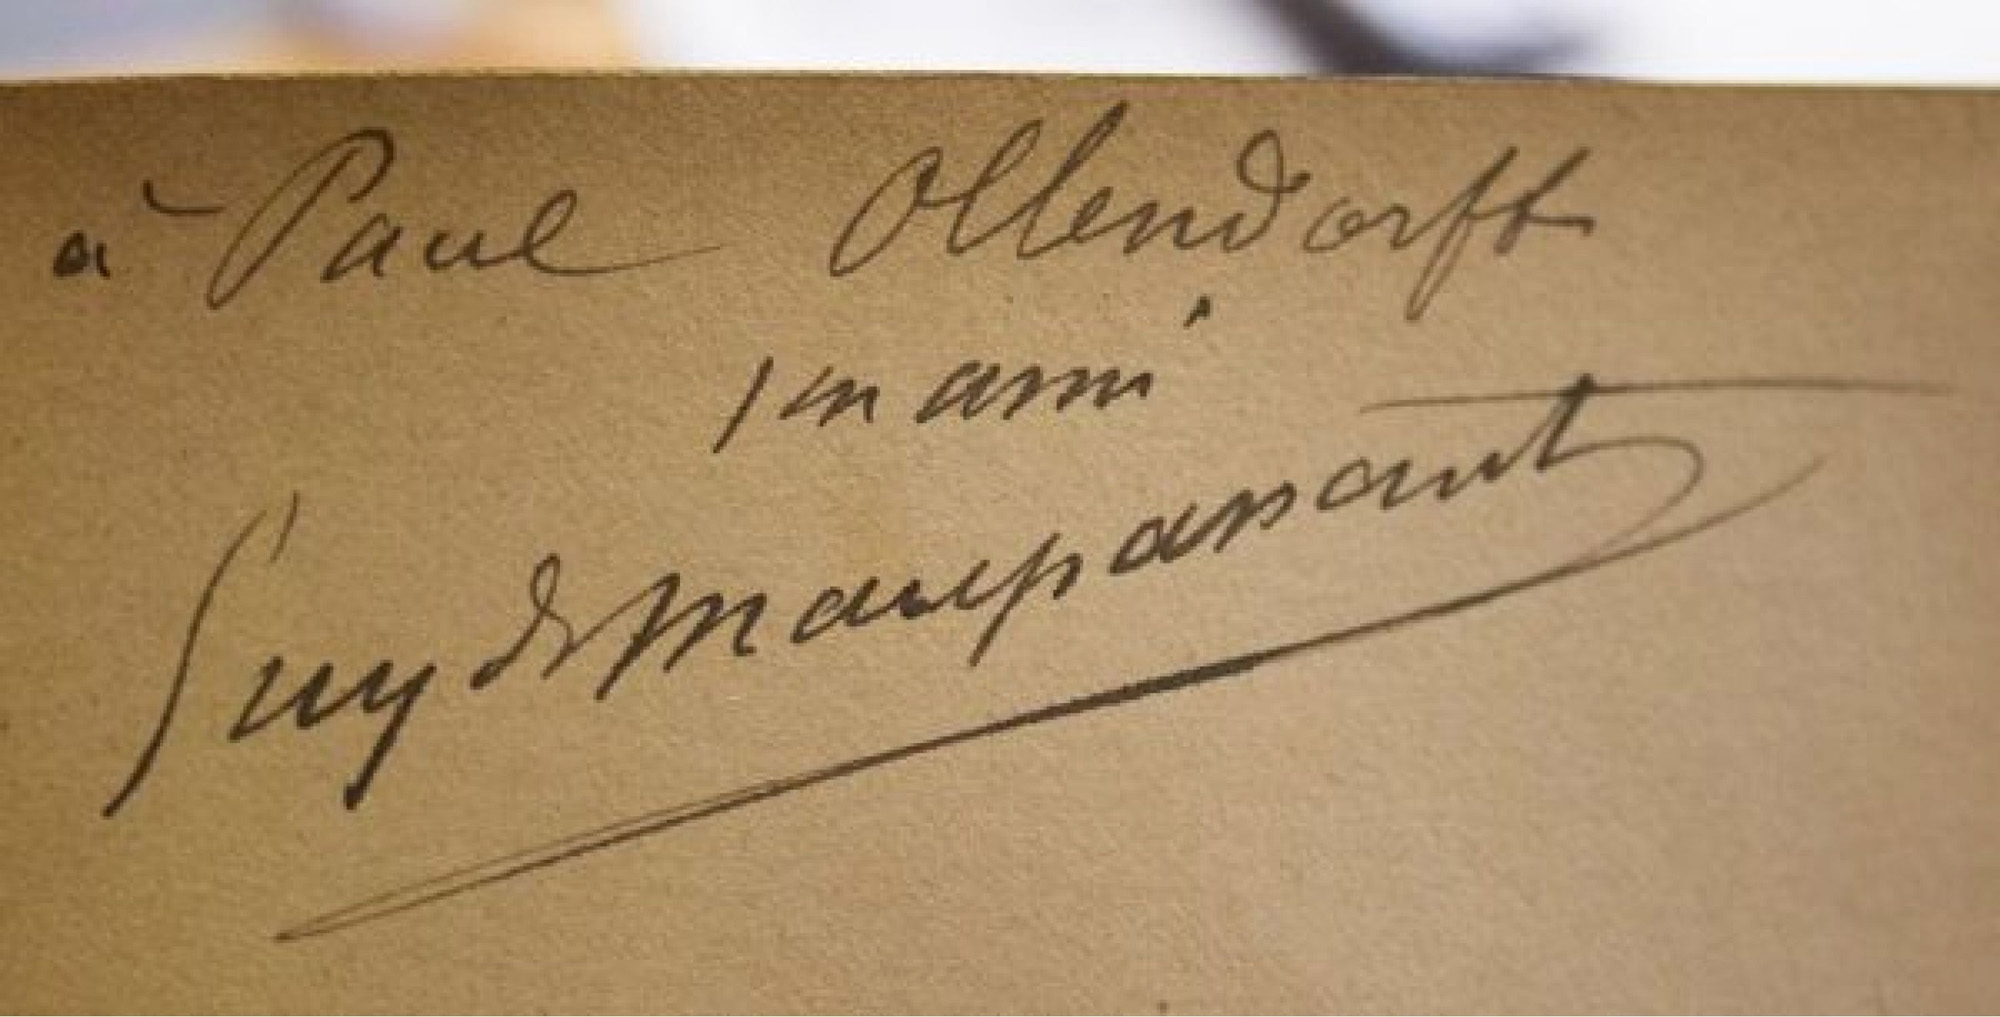 à Paul Ollendorff
son ami
Guy de Maupassant